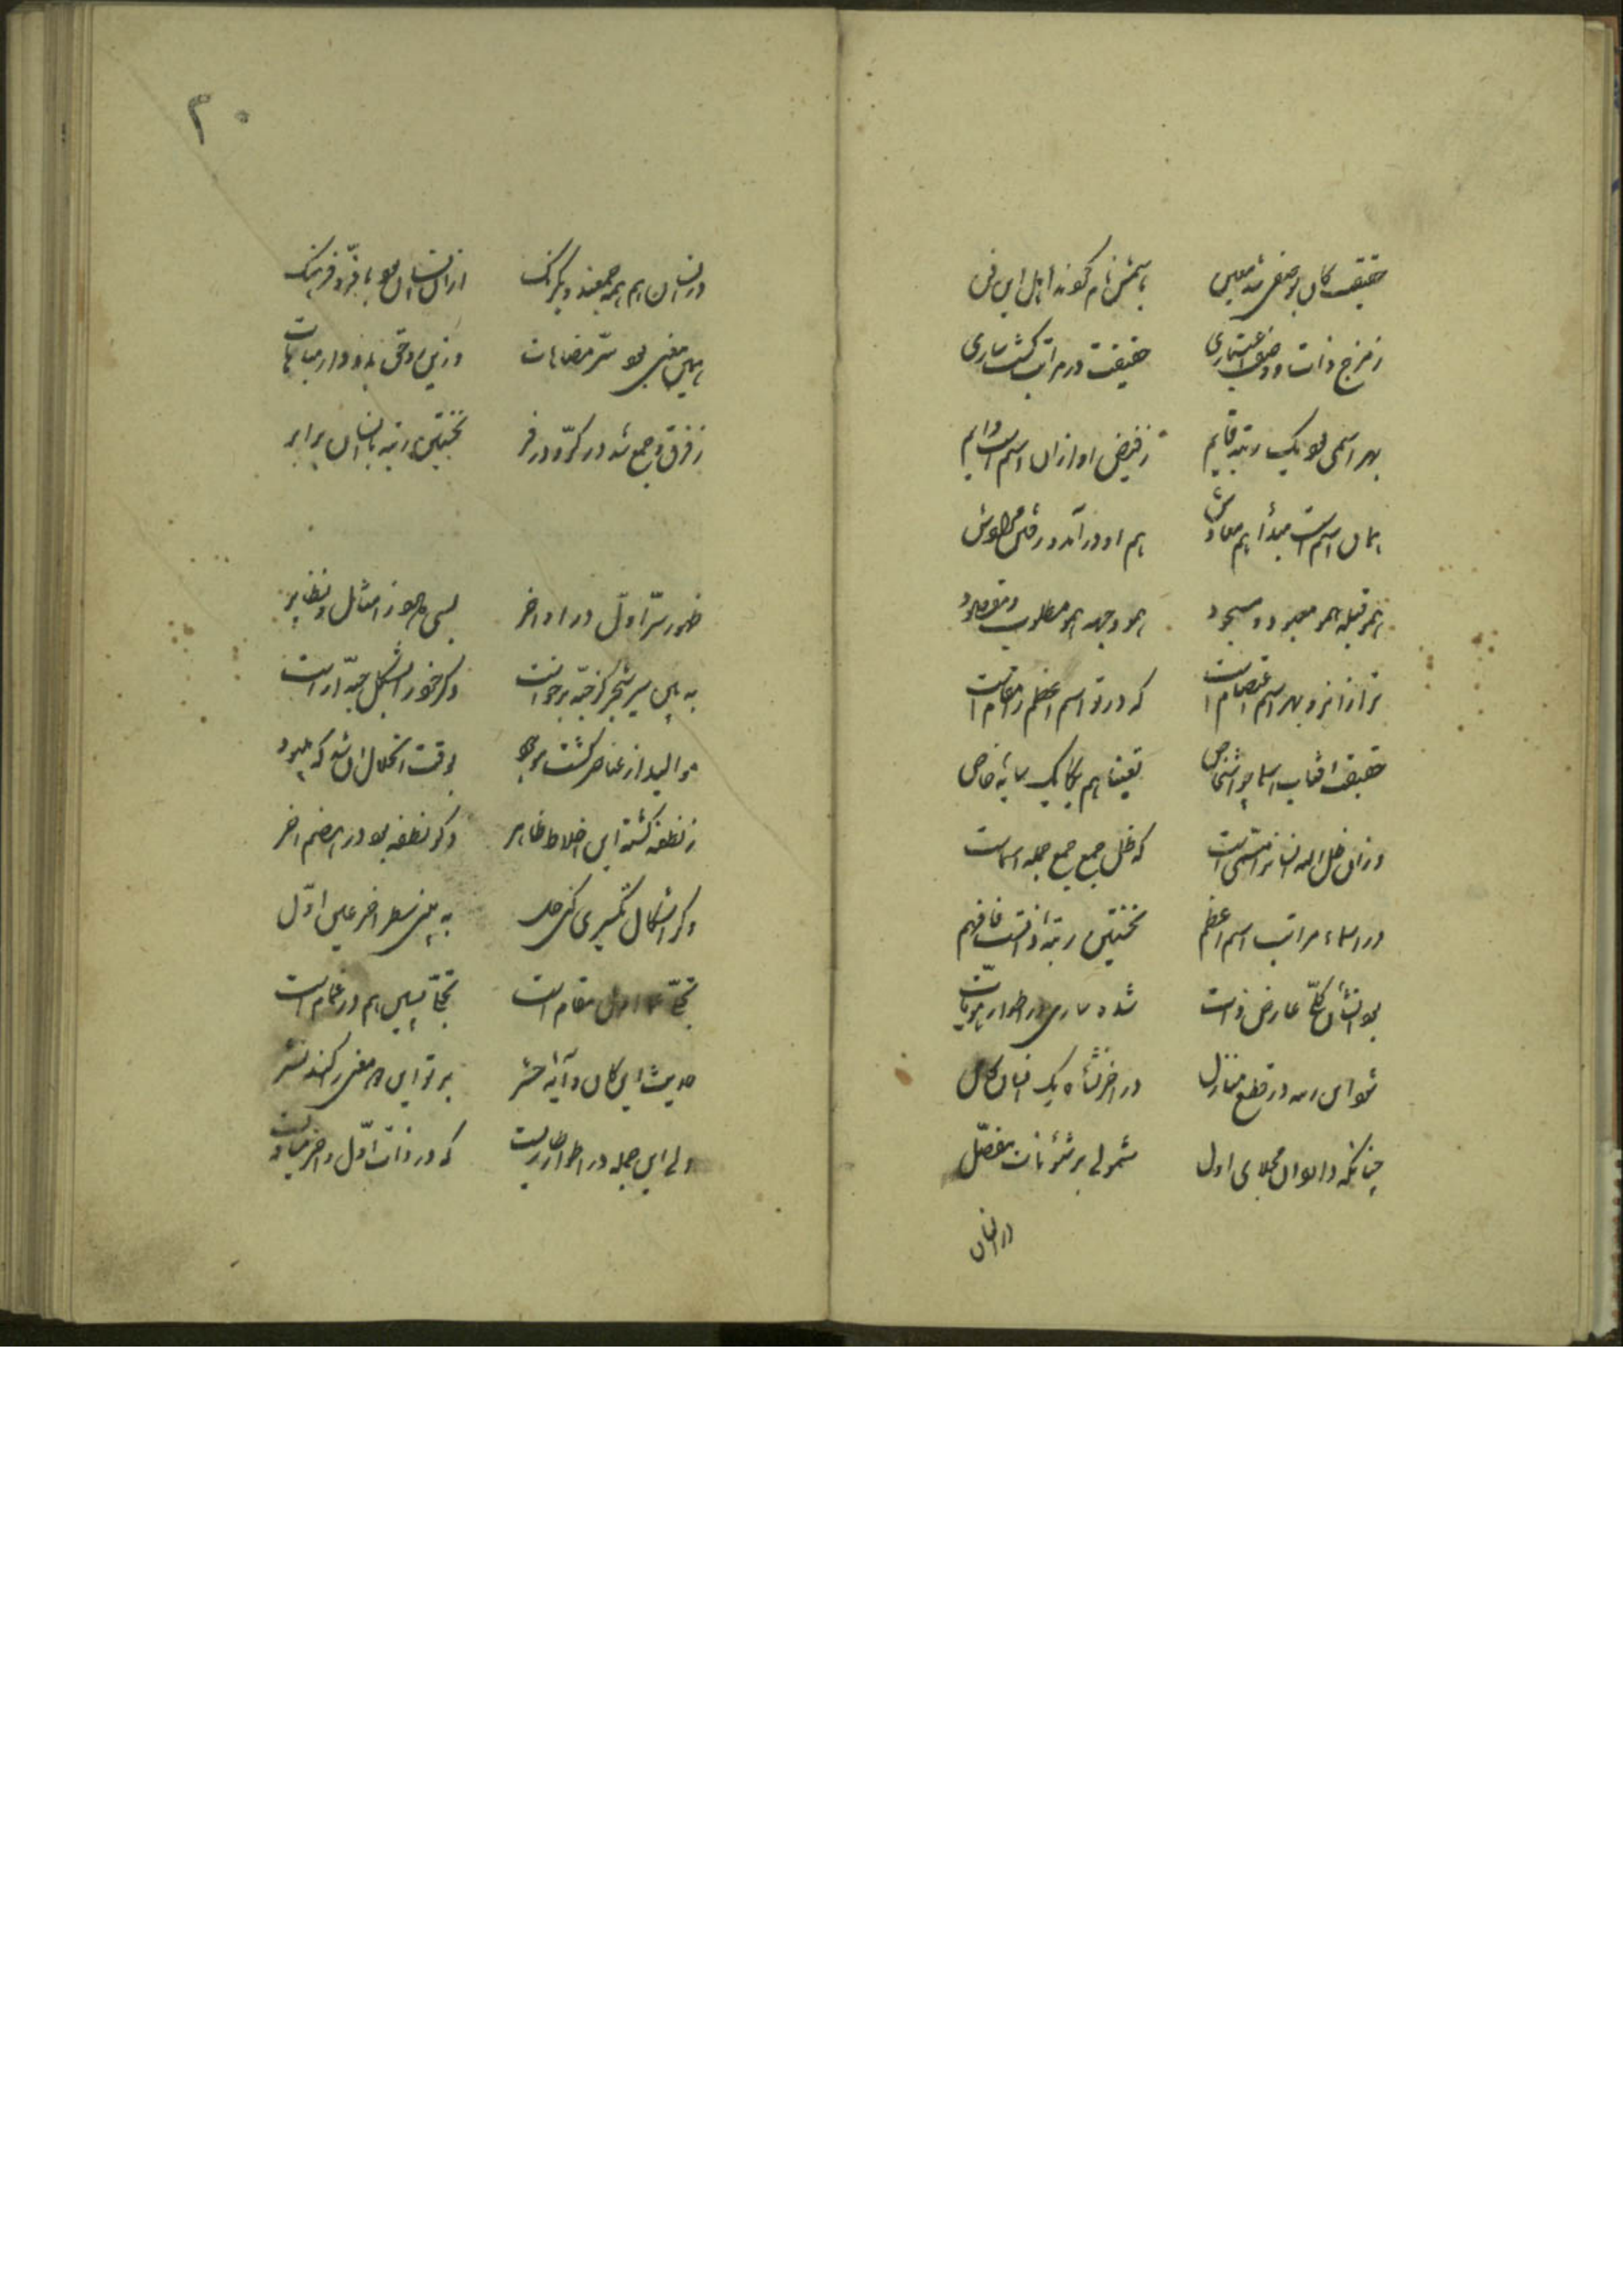 حقیقت کان بوصفی شد معین باسمش نام گویند اهل این فن
ز مزج ذات و وصف اعتباری حقیقت در مراتب گشت ساری
بهر اسمی بود یک رتبه قایم ز فیض او ازان اسم است دایم
همان اسم است مبدأ هم معادش هم او درآمد و رفتن مرادش
همو قبله همو معبود و مسجود همو وجهه همو مطلوب و مقصود
ترا زانرو بهر اسم اعتصام است که در تو اسم اعظم را مقام است
حقیقت افتاب اسما چو اشخاص تعینها هم یکایک سایه خاص
وزان ظل اله انسان را مسمی است که ظل جمع جمع جمله اسماست
در اسماء مراتب اسم اعظم نخستین رتبه ذاتست فافهم
بود انسان کلی عارض ذات شده ساری در اطوار هویات
شود این ره در قطع منازل در اخر نشاه یک انسان کامل
چنانکه دارد ان مجلای اول شمولی بر شئونات مفصل
در انسان
در انسان هم همه جمعند و یکرنگ ازان انسان بود با فر و فرهنگ
همین معنی بود سر مضاهات وزین روحی بدو دارد مباهات
ز فرق و جمع شد در کر و در فر نخستین رتبه با انسان برابر
ظهور سر اول در اواخر بسی دارد ز امثال و نظایر
به بین سیر شجر کز حبه برخواست دگر خود را بشکل حبه آراست
موالید از عناصر گشت موجود بوقت انحلال ان شد که بد بود
ز نطفه گشته این اخلاط ظاهر دگر نطفه بود در هضم اخر
دگر اشکال تکسیری کنی حل به بینی سطر اخر عین اول
تجلی اول مقام است تجلی پسین هم در غمام است
حدیث این کان و آیه حشر بر تو این معنی کند نشر
ولی این جمله در اطوار که در ذات اول و اخر
۲۰